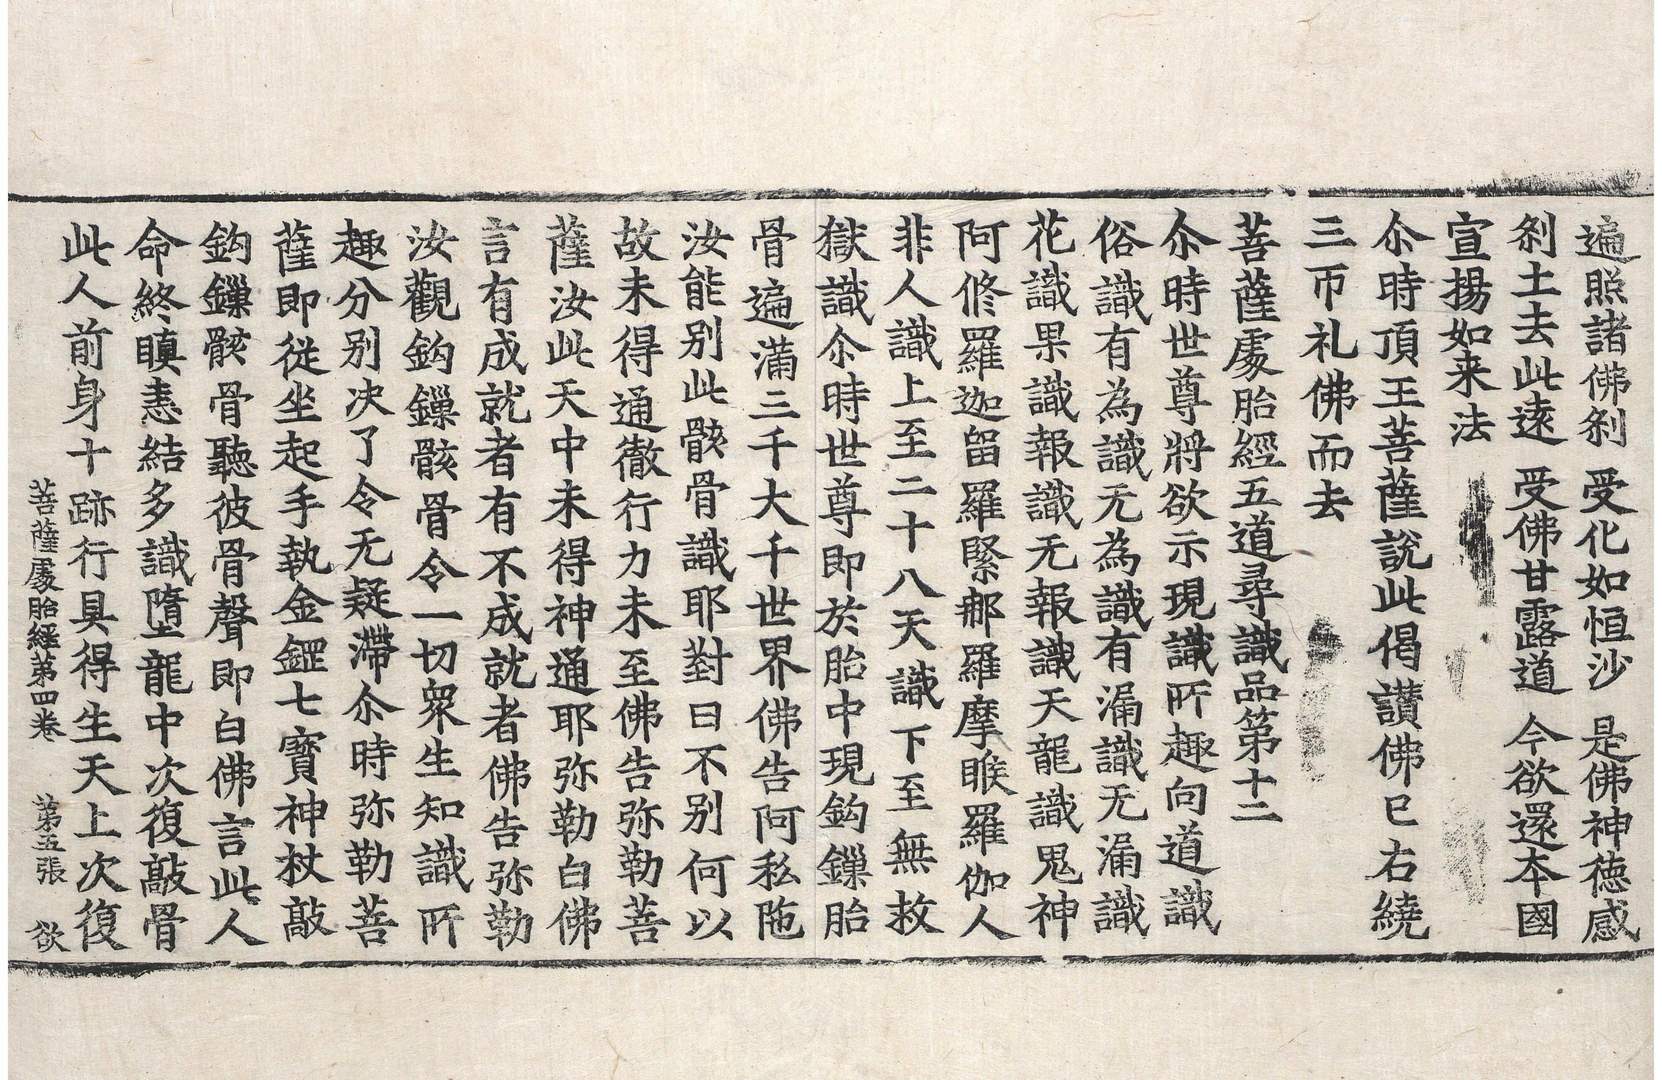 遍照諸佛剎 受化如恒沙 是佛神德感
剎土去此遠 受佛甘露道 今欲還本國
宣揚如来法
尒時頂王菩薩說此偈讚佛已右繞
三帀礼佛而去
菩薩處胎經五道尋識品第十二
尒時世尊將欲示現識所趣向道識
俗識有為識无為識有漏識无漏識
花識果識報識无報識天龍識鬼神
阿修羅迦留羅緊那羅摩睺羅伽人
非人識上至二十八天識下至無救
獄識尒時世尊即於胎中現鈎鏁胎
骨遍滿三千大千世界佛告阿私陁
汝能别此骸骨識耶對曰不别何以
故未得通徹行力未至佛告弥勒菩
薩汝此天中未得神通耶弥勒白佛
言有成就者有不成就者佛告弥勒
汝觀鈎鏁骸骨令一切衆生知識所
趣分别决了令无疑滯尒時弥勒菩
薩即從坐起手執金鉀七寳神杖敲
鈎鏁骸骨聽彼骨聲即白佛言此人
命終瞋恚結多識墮龍中次復敲骨
此人前身十跡行具得生天上次復
菩薩處胎經第四卷 第五張 欲